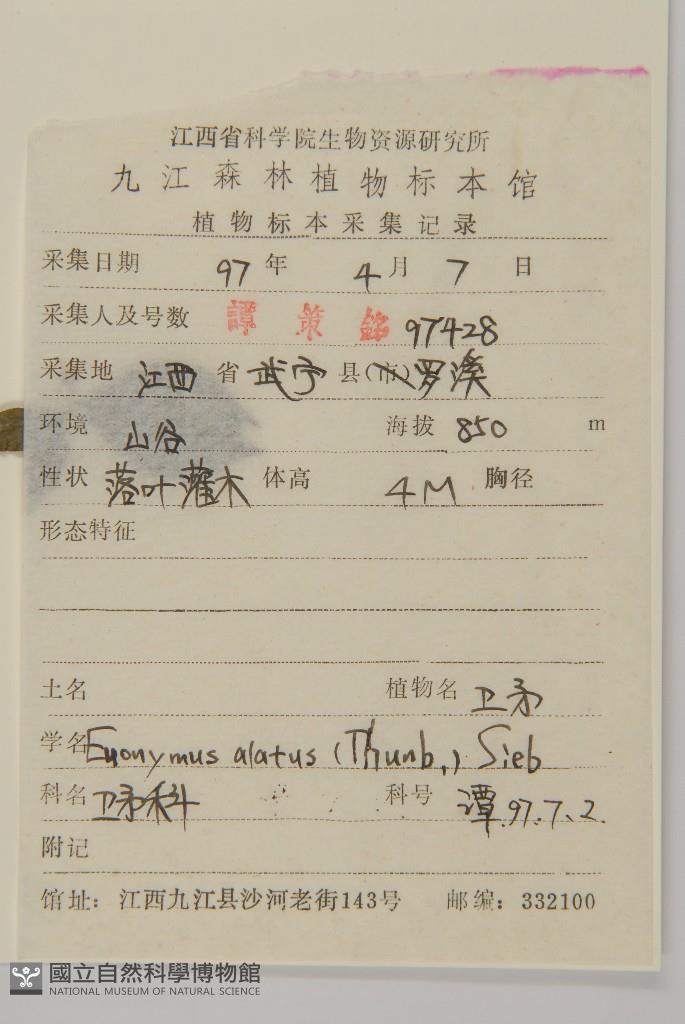 江西省科学院生物资源研究所
九江森林植物标本馆
植物标本采集记录
采集日期 97 年 4 月 7 日
采集人及号数 譚策銘 97428
采集地 江西 省 武宁 县(市) 罗溪
环境 山谷 海拔 850 m
性状 落叶灌木 体高 4M 胸径
形态特征
土名 植物名 卫矛
学名 Euonymus alatus (Thunb.) Sieb
科名 卫矛科 科号 潭.97.7.2.
附记
馆址：江西九江县沙河老街143号 邮编：332100
國立自然科學博物館
NATIONAL MUSEUM OF NATURAL SCIENCE